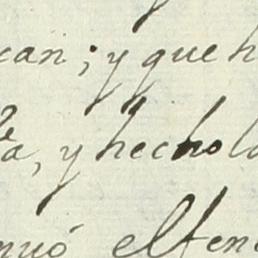 can; y que h
a, y hecho la
nuó el Ten